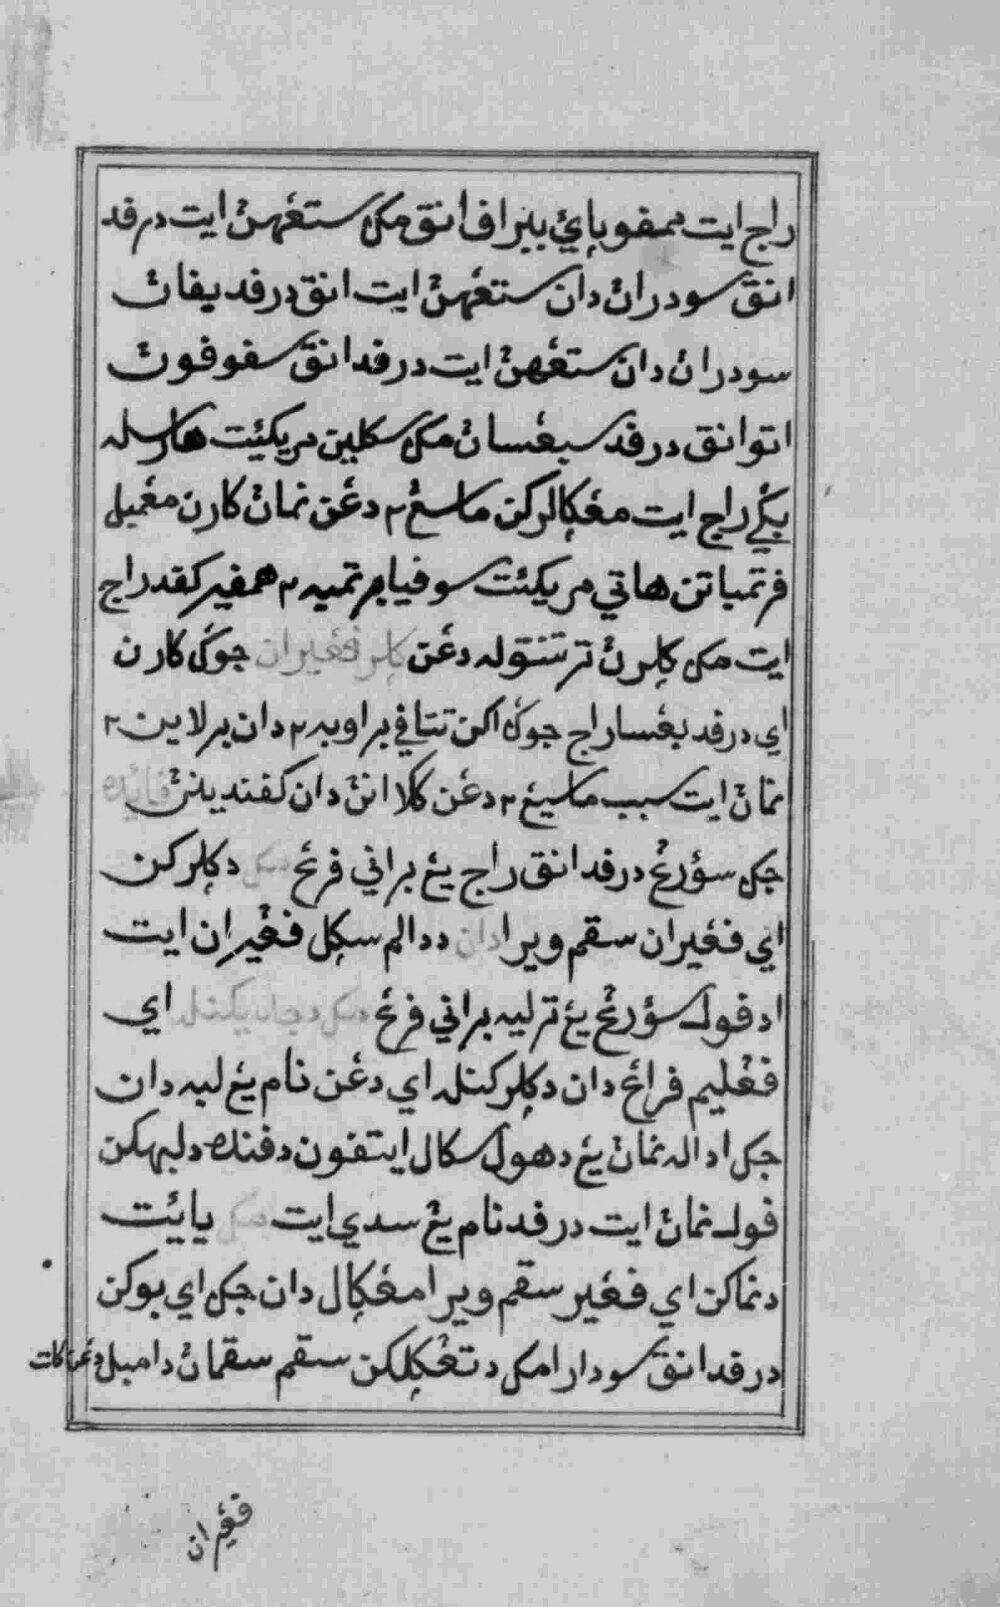 راج ايت ممفوڽاءي ببراف انق مک ستڠهن ايت درفد
انق سودران دان ستڠهن ايت انق درفد يفان
سودران دان ستڠهن ايت درفد انق سفوفون
اتو انق درفد سبڠسان مک سکلين مريکئيت هارسله
بݢي راج ايت مڠݢلرکن ماسيڠ٢ دڠن نمان کارن مڠمبل
فرتمباتن هاتي مريکئت سوفيا برتمبه٢ همفير کفد راج
ايت مک ݢلرن ترتنتوله دڠن ݢلر فڠيران جوݢ کارن
اي درفد بڠسا راج جوݢ اکن تتافي براوبه٢ دان برلاين٢
نمان ايت سبب ماسيڠ٢ دڠن کلاکوانن دان کفنديئن فائده
جک سؤرڠ درفد انق راج يڠ براني فرڠ مک دݢلرکن
اي فڠيران سقم ويرا دان ددالم سݢل فڠيران ايت
اد فول سؤرڠ يڠ ترلبه براني فرڠ مک دجاديکنله اي
فڠليم فراڠ دان دݢلرکنله اي دڠن نام يڠ لبه دان
جک اداله نمان يڠ دهول سکالايتفون دفنده دلبهکن
فول نمان ايت درفد نام يڠ سدي ايت مک يايئت
دنماکن اي فڠير سقم ويرا مڠݢال دان جک اي بوکن
درفد انق سودارا مک دتڠݢلکن سقم سقمان دامبل دڠن کات
فڠيران